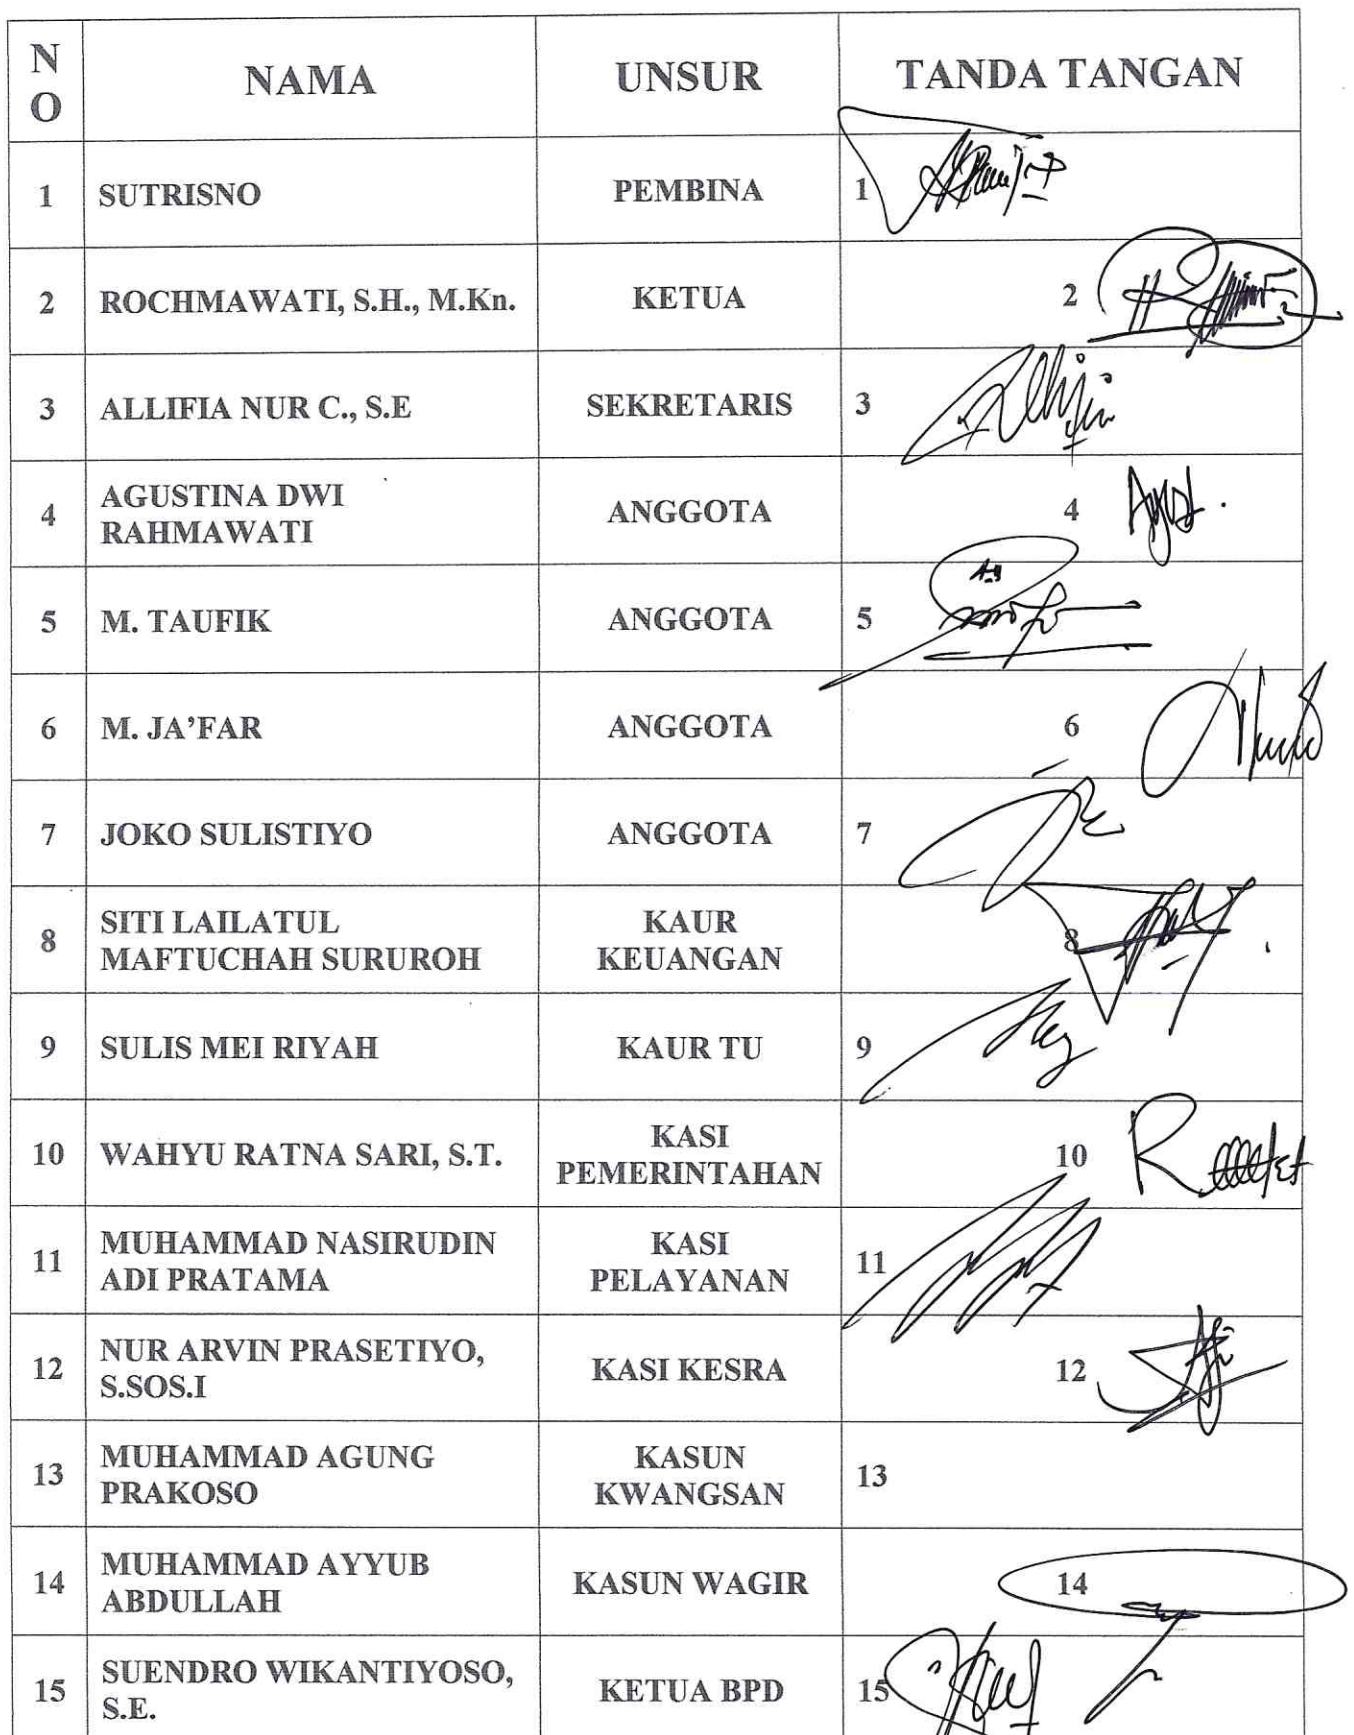 N
O
NAMA
UNSUR
TANDA TANGAN
1
SUTRISNO
PEMBINA
1
2
ROCHMAWATI, S.H., M.Kn.
KETUA
2
3
ALLIFIA NUR C., S.E
SEKRETARIS
3
4
AGUSTINA DWI
RAHMAWATI
ANGGOTA
4
5
M. TAUFIK
ANGGOTA
5
6
M. JA’FAR
ANGGOTA
6
7
JOKO SULISTIYO
ANGGOTA
7
8
SITI LAILATUL
MAFTUCHAH SURUROH
KAUR
KEUANGAN
8
9
SULIS MEI RIYAH
KAUR TU
9
10
WAHYU RATNA SARI, S.T.
KASI
PEMERINTAHAN
10
11
MUHAMMAD NASIRUDIN
ADI PRATAMA
KASI
PELAYANAN
11
12
NUR ARVIN PRASETIYO,
S.SOS.I
KASI KESRA
12
13
MUHAMMAD AGUNG
PRAKOSO
KASUN
KWANGSAN
13
14
MUHAMMAD AYYUB
ABDULLAH
KASUN WAGIR
14
15
SUENDRO WIKANTIYOSO,
S.E.
KETUA BPD
15